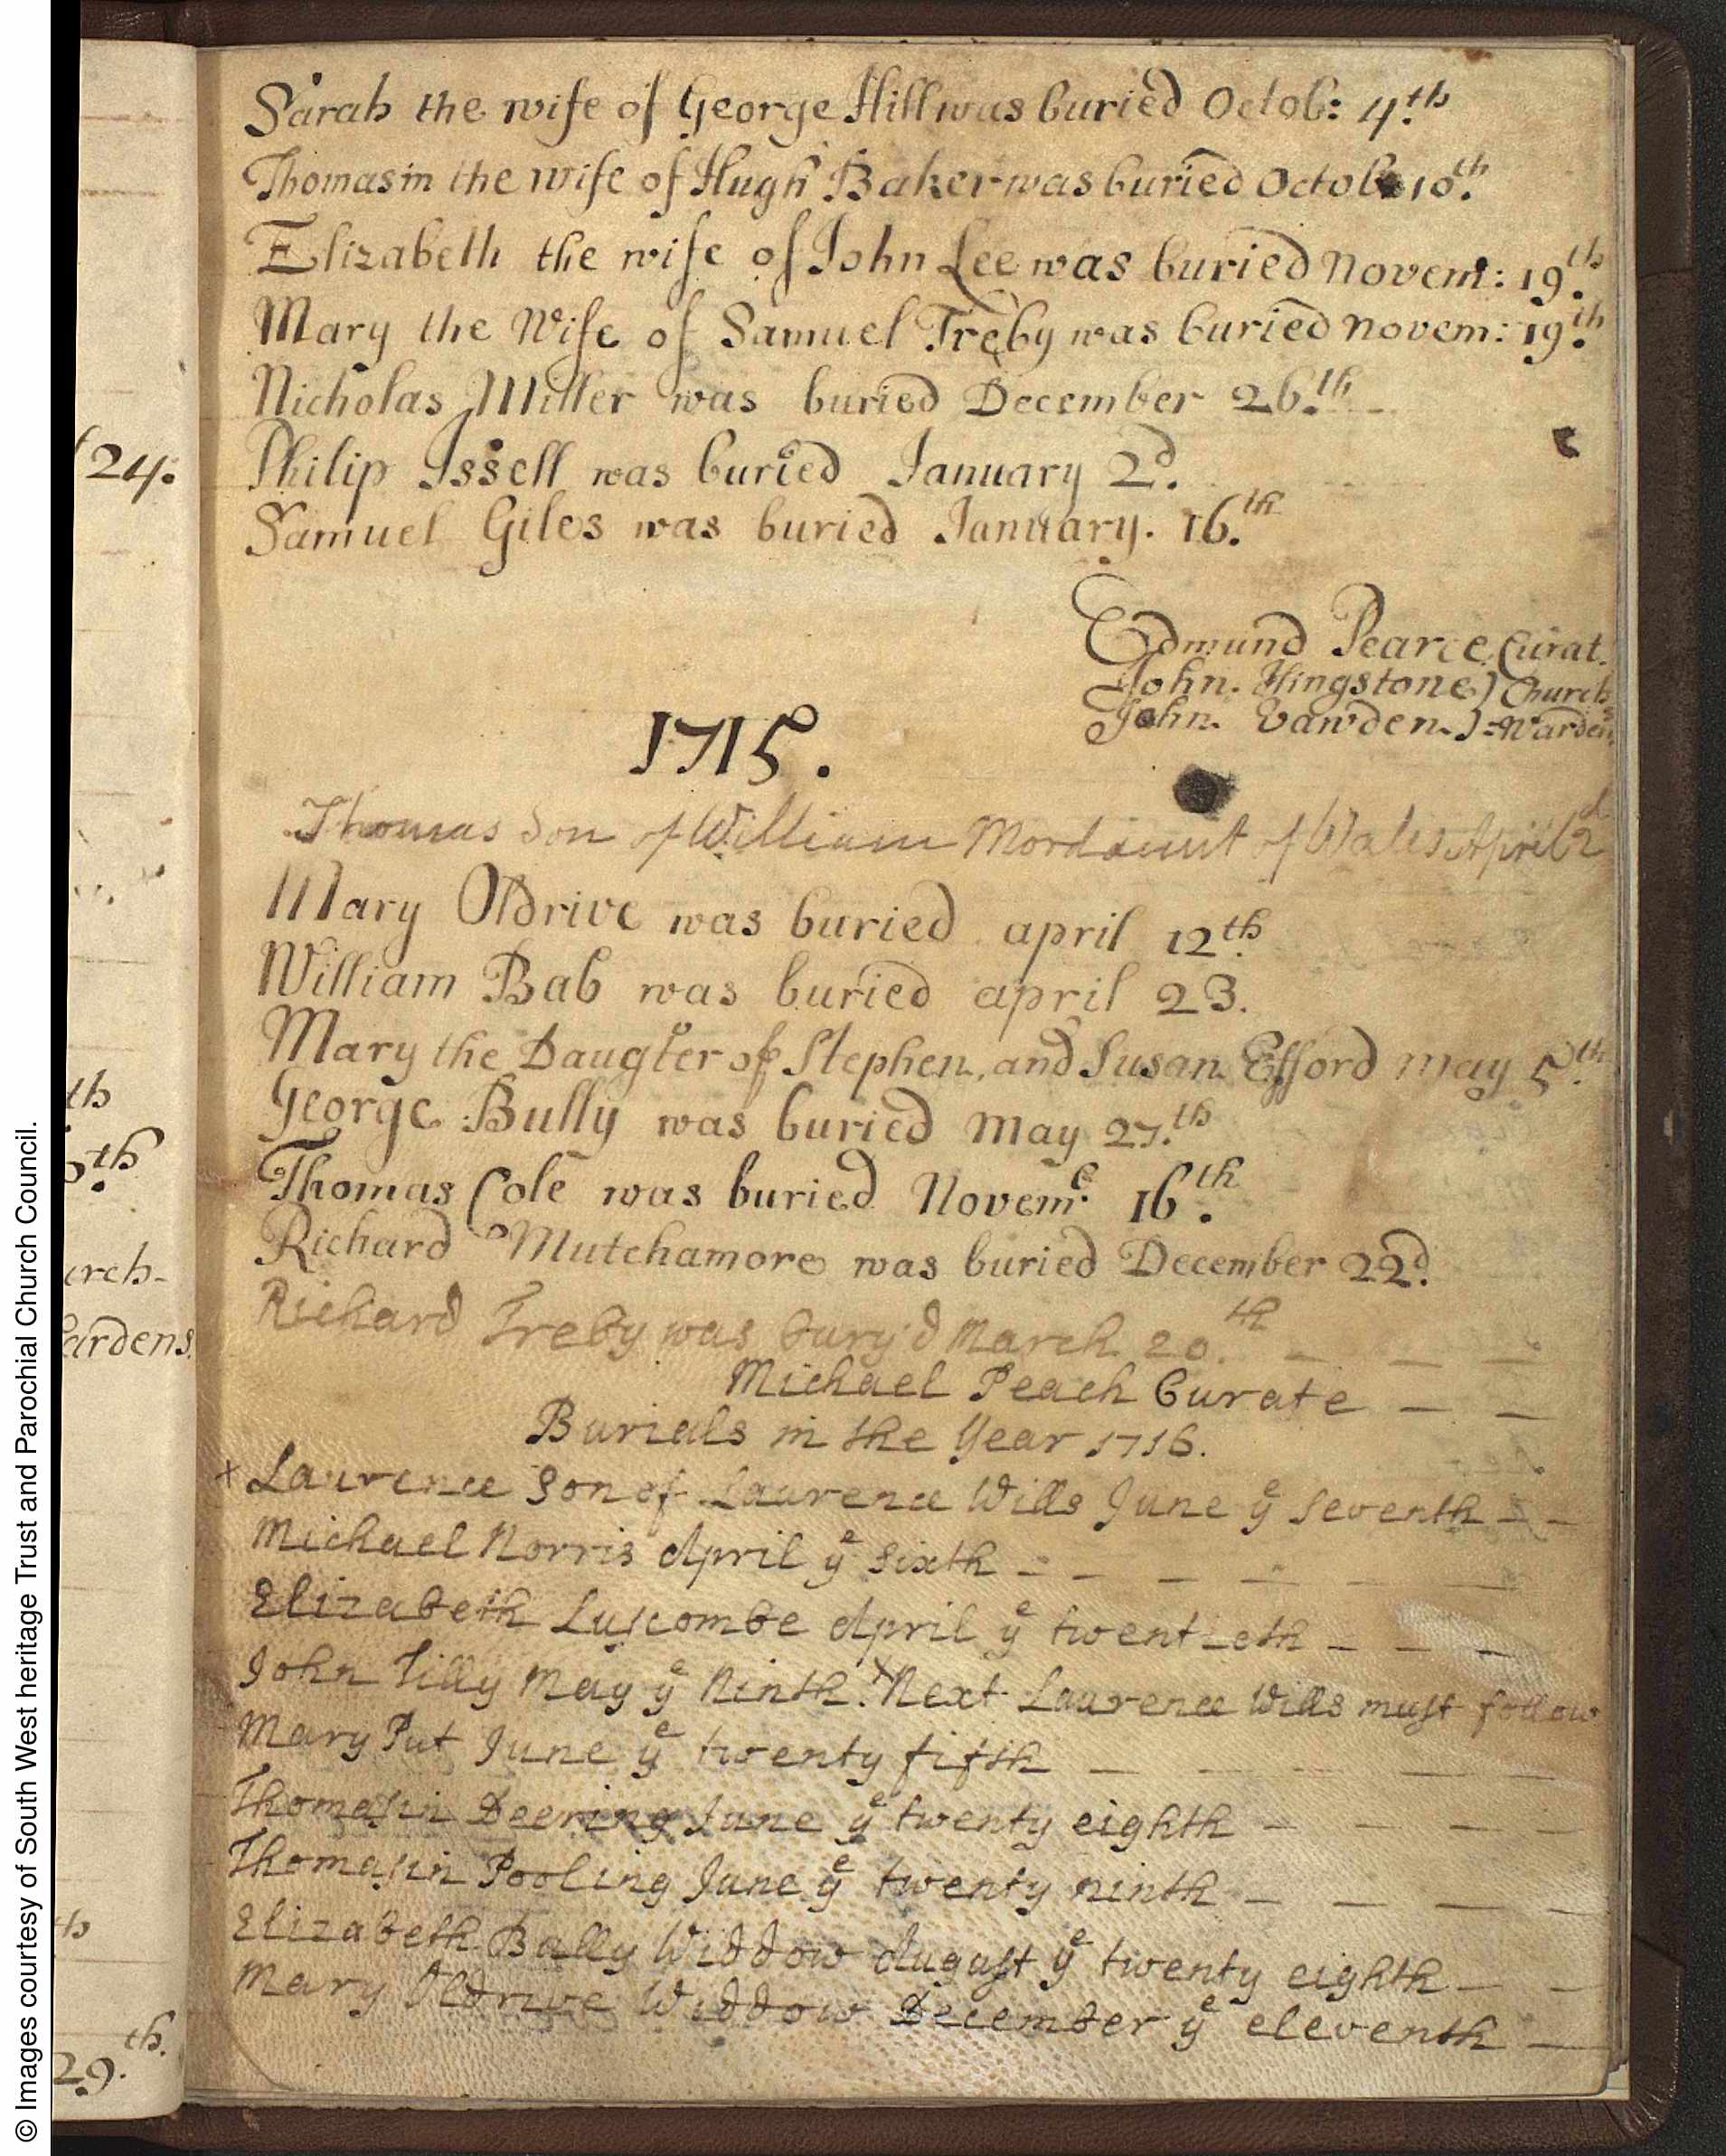 Sarah the wife of George Hill was buried Octob: 4th
Thomasin the wife of Hugh Baker was buried Octob 10th.
Elizabeth the wife of John Lee was buried Novem: 19th.
Mary the Wife of Samuel Treby was buried Novem: 19th.
Nicholas Miller was buried December 26th.
Philip Issell was buried January 2d.
Samuel Giles was buried January. 16th.
Edmund Pearce Curat.
John. Hingstone) Church
John. Vawden.) -Wardens
1715.
Thomas Son of William Mordaunt of Wales April 2d
Mary Oldrive was buried april 12th.
William Bab was buried april 23.
Mary the Daugter of Stephen, and Susan Efford may 5th.
George Bully was buried May 27th.
Thomas Cole was buried Novem:e 16th.
Richard Mutchamore was buried December 22d.
Richard Treby was bury'd March 20th. — — —
Michael Peach Curate — —
Burials in the Year 1716.
+ Laurence Son of Laurence Wills June ye Seventh — —
Michael Norris April ye Sixth — — — — — —
Elizabeth Luscombe April ye twentieth — — —
John Tilly May ye Ninth. x Next Laurence Wills must follow
Mary Put June ye twenty fifth — — — — —
Thomasin Deering June ye twenty eighth — — — —
Thomasin Pooling June ye twenty ninth — — — —
Elizabeth Bally Widdow August ye twenty eighth — —
Mary Oldrive Widdow December ye eleventh —
24.
th
5th.
urch-
ardens
th
29th.
© Images courtesy of South West heritage Trust and Parochial Church Council.